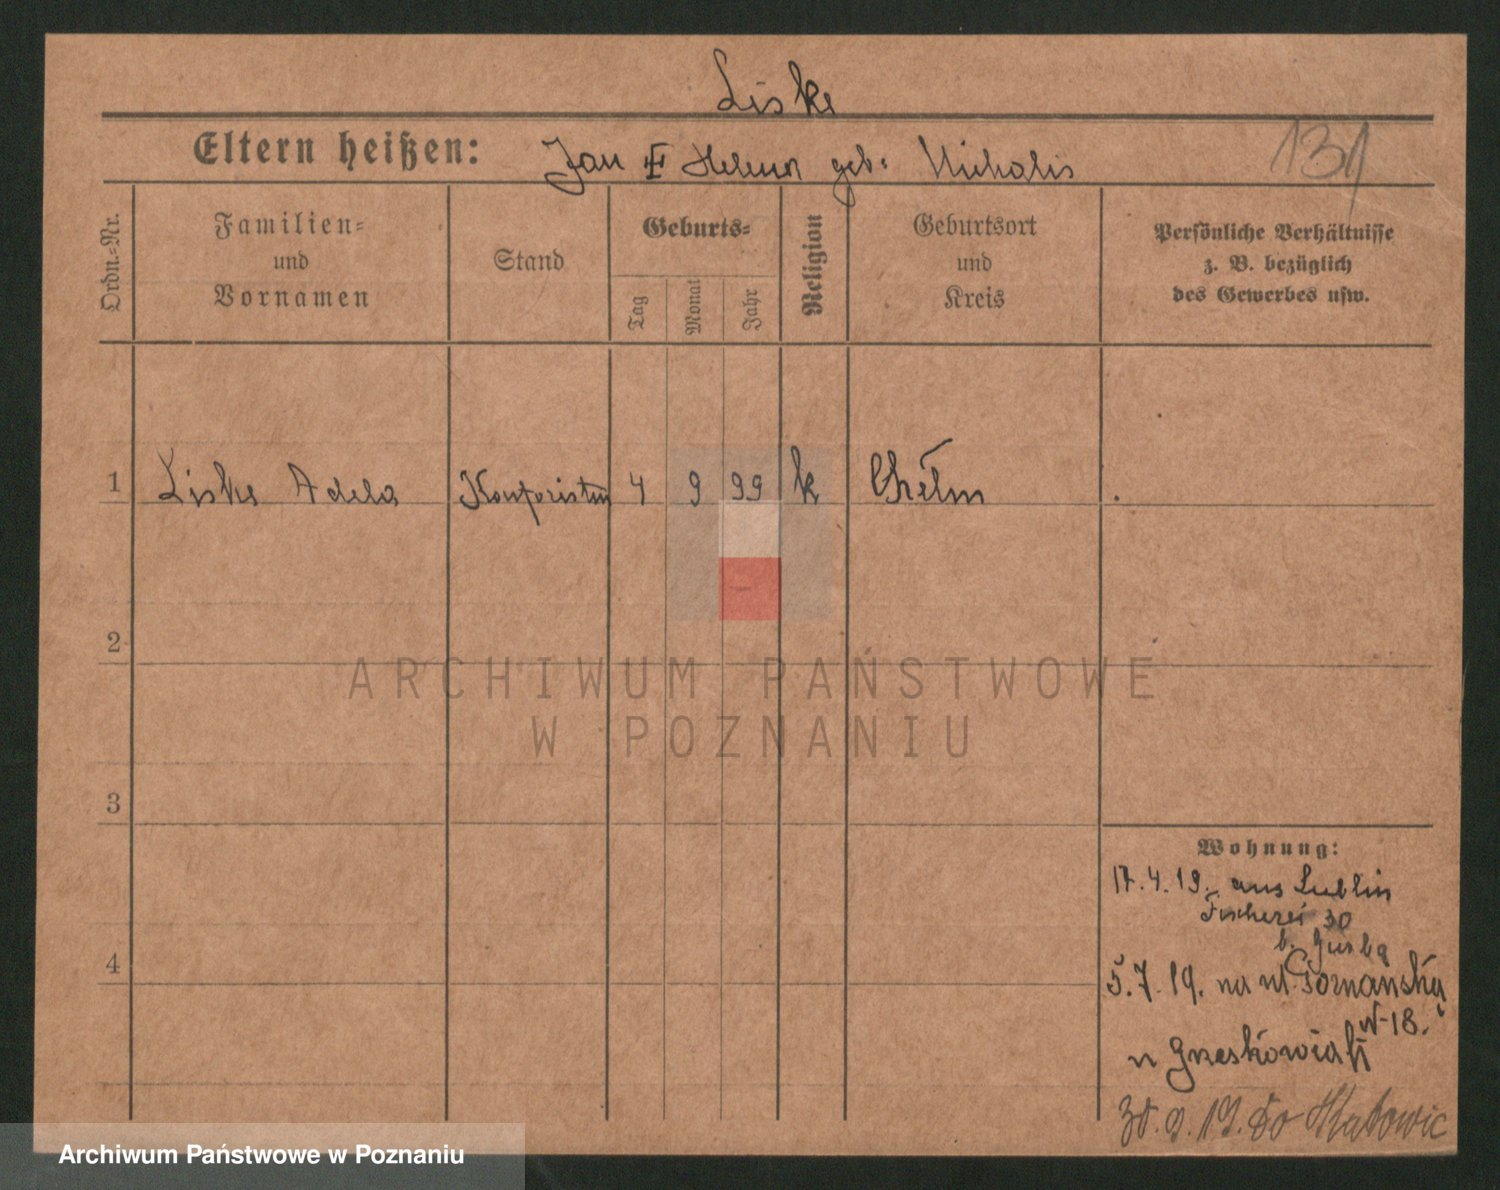 Liske
Eltern heißen: Jan u Helena geb: Michalis
131
Ordn.-Nr.
Familien-
und
Vornamen
Stand
Geburts-
Tag
Monat
Jahr
Religion
Geburtsort
und
Kreis
Persönliche Verhältnisse
z. B. bezüglich
des Gewerbes usw.
1 Liske Adela Kontoristin 4 9 99 k Chełm
2
3
4
Wohnung:
17.4.19. aus Lublin
Fischerei 30
b.
5.7.19. na ul. Poznańską
N-18.
u Grześkowiak
30.9.19. do Katowic
ARCHIWUM PAŃSTWOWE
W POZNANIU
Archiwum Państwowe w Poznaniu